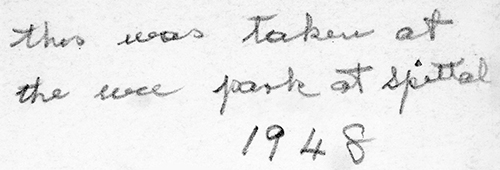 this was taken at
the wee park at Spittal
1948